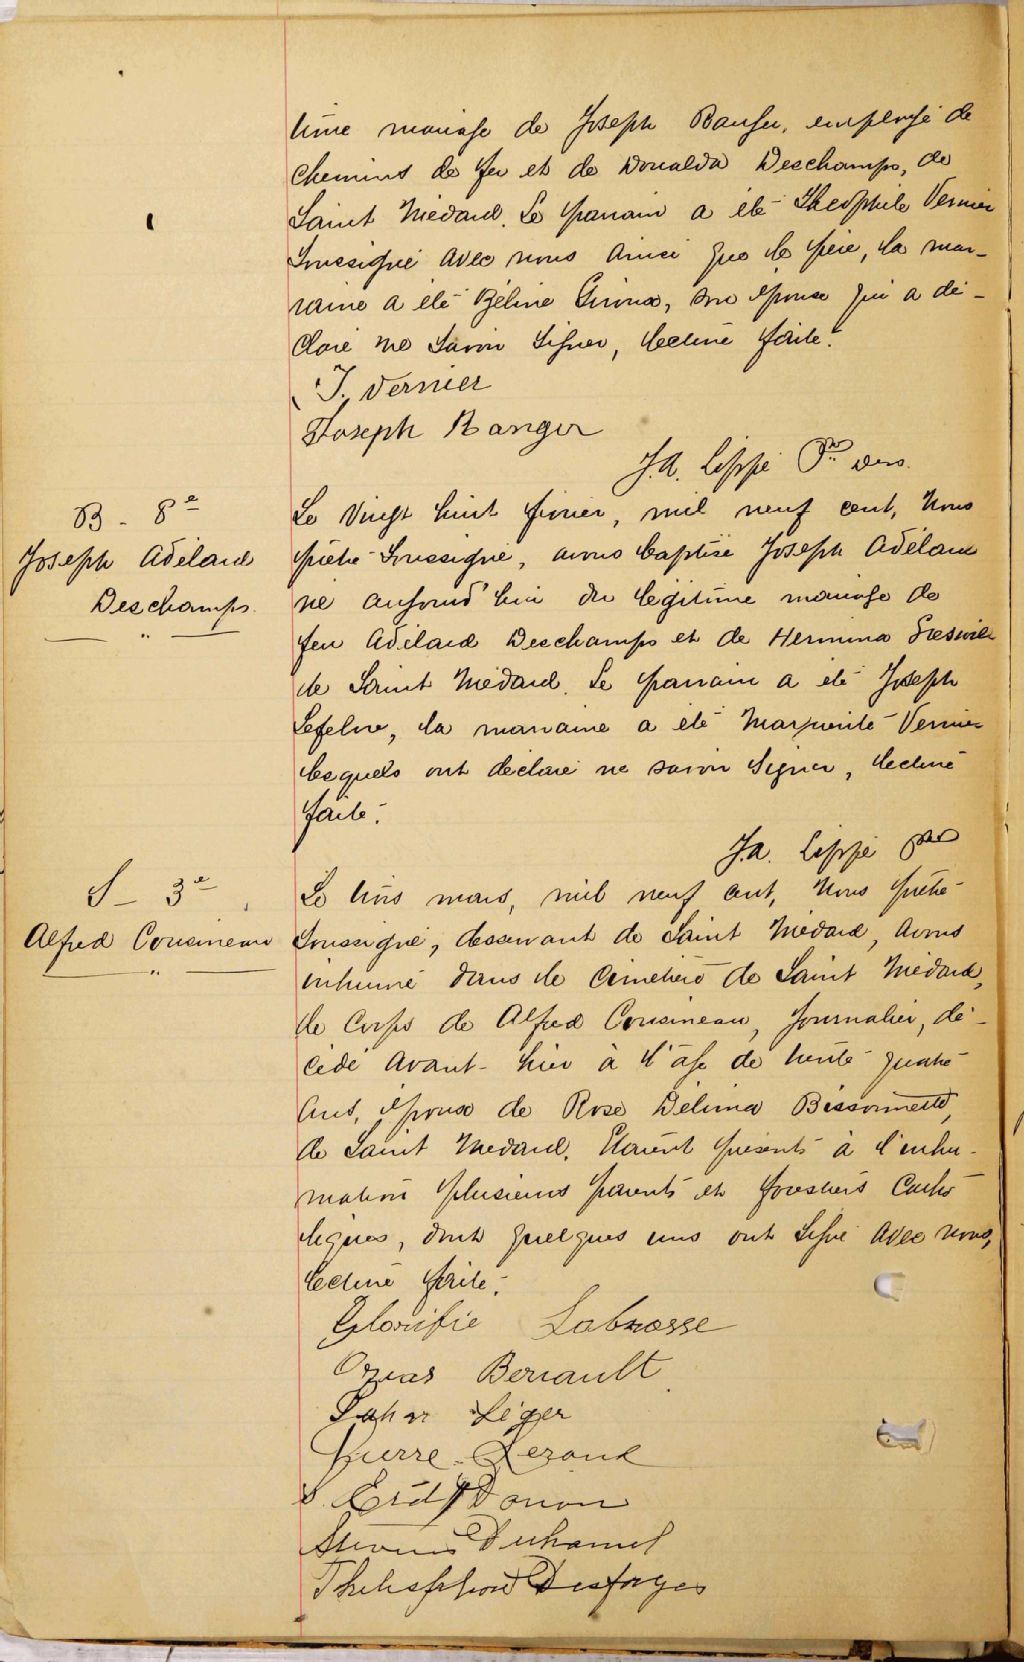 time mariage de Joseph Ranger, employé de
chemins de fer et de Donalda Deschamps, de
Saint Médard. Le parrain a été Théophile Vernier
soussigné avec nous ainsi que le père, la mar-
raine a été Zéline Giroux, son épouse qui a dé-
claré ne savoir signer, lecture faite.
T. Vernier
Joseph Ranger
J.A. Lippé Ptre Des.
B - 8e
Joseph Adélard
Deschamps.
Le vingt huit février, mil neuf cent, Nous
prêtre soussigné, avons baptisé Joseph Adélard
né aujourd'hui du légitime mariage de
feu Adélard Deschamps et de Hermina
de Saint Médard. Le parrain a été Joseph
Lefebvre, la marraine a été Marguerite Vernier
lesquels ont déclaré ne savoir signer, lecture
faite.
J.A. Lippé Ptre
S - 3e
Alfred Cousineau
Le trois mars, mil neuf cent, Nous prêtre
soussigné, desservant de Saint Médard, avons
inhumé dans le cimetière de Saint Médard,
le corps de Alfred Cousineau, journalier, dé-
cédé avant-hier à l'âge de trente quatre
ans, époux de Rose Délima Bissonnette,
de Saint Médard. Etaient présents à l'inhu-
mation plusieurs parents et forestiers catho
liques, dont quelques uns ont signé avec nous,
lecture faite.
Glorifie Labrosse
Ozias Beriault
Léger
Pierre
Donon
Duhamel
Desforges